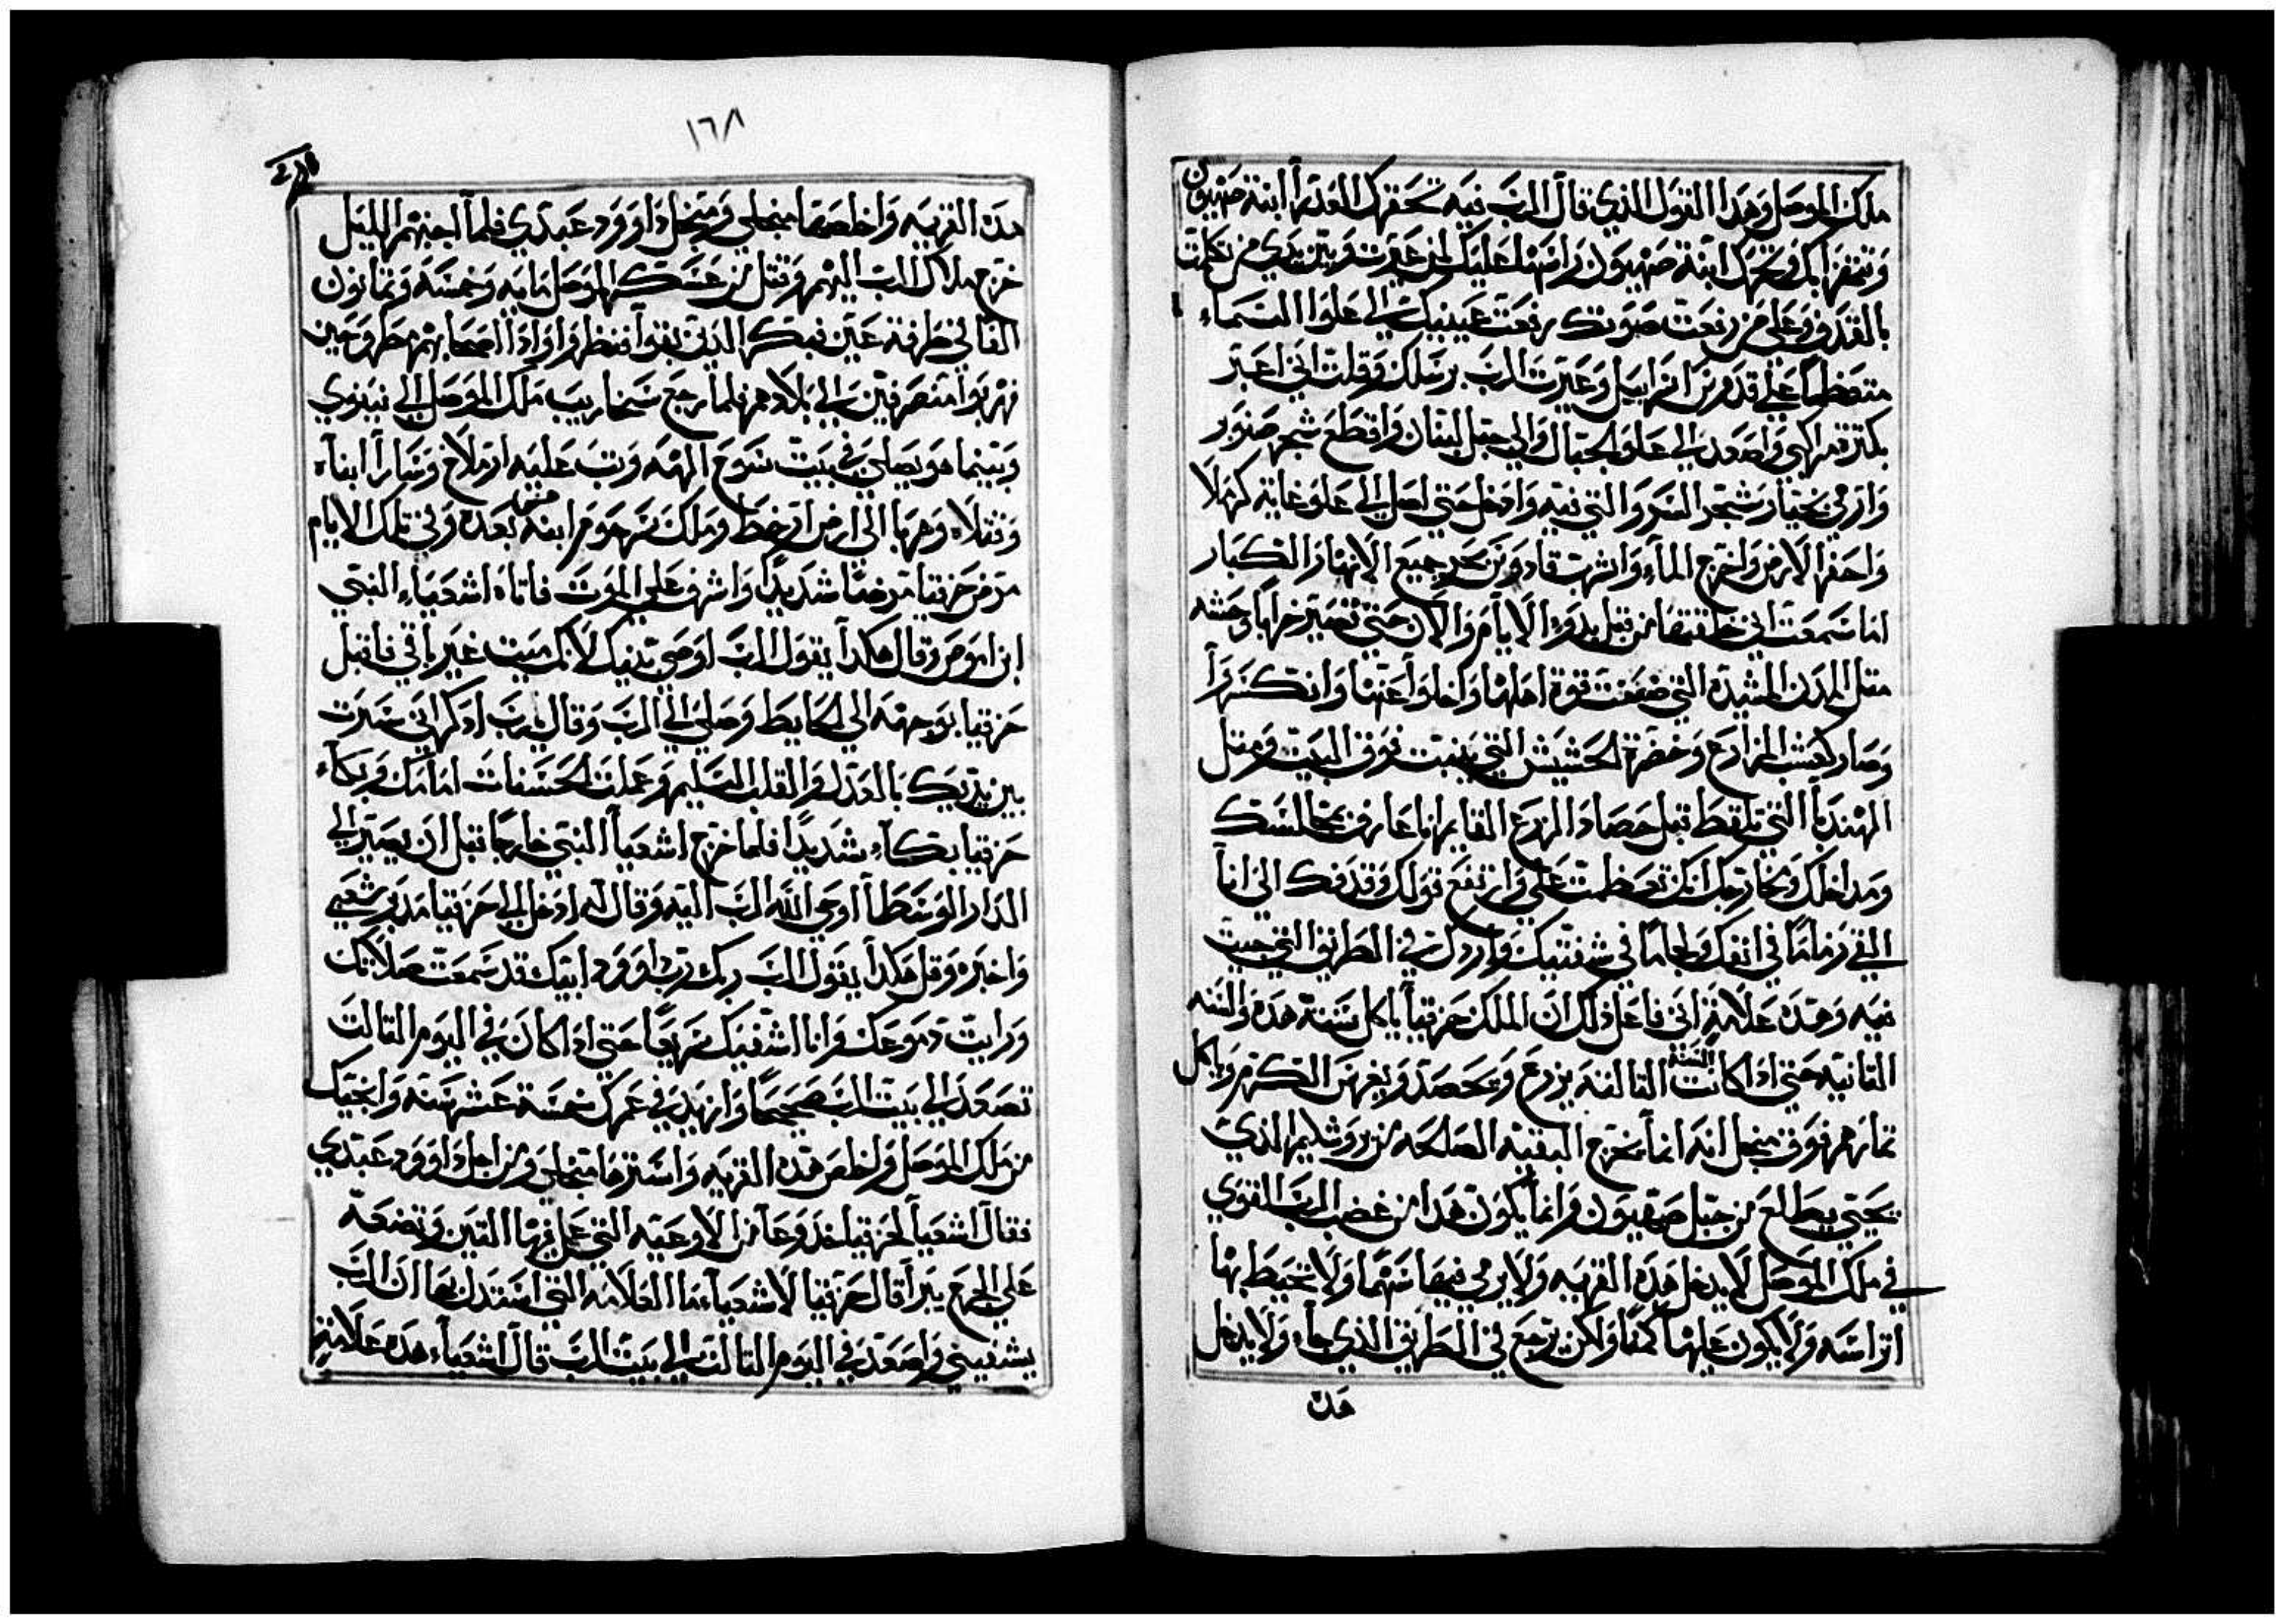 ملك الموصل وهدا القول الذي قال الرب فيه تحقرك العدرا ابنة صهيون
وتمقر بك وتحرك ابنة صهيون راسها عليك لمن عيرت وبين يدي من تكلمت
بالقدف وعلي من رفعت صوتك رفعت عينيك الي علوا السماء
متعظما علي قدوس اسراييل وعيرت الرب برسلك وقلت اني اعبر
بكترة مراكبي واصعد الي علو الجبال والي جبل لبنان واقطع شجر صنوبر
وارمي بخيار شجر السرو التي فيه وادخل حتي اصل الي علو غاية كرملا
واحفر الارض واخرج الماء واشرب قاد ونحر جميع الانهار الكبار
اما سمعت اني خلقتها من قبل بدو الايام والان حتي تصير خرابا وحشه
متل المدن المشيدة التي ضعفت قوة اهلها واخلوا عنها وانكسروا
وصار كعشب المزارع وخضرة الحشيش التي ينبت فوق البيت ومتل
الهندبا التي تلقط قبل حصاد الزرع القايم انا عارف بمجالسك
ومداخلك ومخارجك انك تعظمت علي وارتفع قولك وقدفك الي انا
القي زماما في انفك ولجاما في شفتيك واردك في الطريق التي جيت
فيه وهده علامة اني فاعل دلك ان الملك حزقيا ياكل سنة هده والسنه
التانيه حتي ادا كانت السنة التالته يزرع ويحصد ويغرس الكرم وياكل
تمارهم فوق منجل انه انما يخرج البقيه الصالحه من يروشليم الذي
يحتي يطلع من جبل صهيون وانما يكون هدا من غضب الرب القوي
في ملك الموصل لا يدخل هده القريه ولا يرمي فيها سهما ولا تحيط بها
اتراسه ولا يكون عليها كمنا ولكن يرجع في الطريق الذي جاء ولا يدخل
هده
١٦٨
هده القريه واخلصها منجلي ومنجل داوود عبدي فلما اجنهم الليل
خرج ملاك الرب اليهم وقتل من عسكر الموصل مايه وخمسة وتمانون
الفا في طرفة عين فبكر الدين بقوا فنظروا وادا اصحابهم مطروحين
فهربوا منصرفين الي بلادهم فلما رجع سنحاريب ملك الموصل الي نينوي
وبينما هو يصلي في بيت سوع الهه وتب عليه ادرملاخ وسارا ابناه
وقتلاه وهربا الي ارض ارخط وملك سرحوم ابنه بعده وفي تلك الايام
مرض حزقيا مرضا شديدا واشرف علي الموت فاتاه اشعياء النبي
ابن اموص وقال هكدا يقول الرب اوصي بنيك لانك ميت غير باقي فاقبل
حزقيا بوجهه الي الحايط وصلي الي الرب وقال يا رب ادكر اني سيرت
بين يديك بالعدل والقلب السليم وعملت الحسنات امامك وبكاء
حزقيا بكاء شديدا فلما خرج اشعيا النبي خارجا قبل ان يصير الي
الدار الوسطا اوحي الله الرب اليه وقال له ادخل الي حزقيا مدبر شعبي
واخبره وقل هكدا يقول الرب ربك رب داوود ابيك قد سمعت صلاتك
ورايت دموعك وانا اشفيك سريعا حتي ادا كان في اليوم التالت
تصعد الي بيت الرب صحيحا وازيد في عمرك خمسة عشر سنة وانجيك
من ملك الموصل واخلص هده القريه واسترها منجلي ومن اجل داوود عبدي
فقال اشعيا لحزقيا خد وعا من الاوعيه التي عمل فيها التين وتضعه
علي الجرح يبرا قال حزقيا لاشعياء ما العلامه التي استدل بها ان الرب
يشفيني واصعد في اليوم التالت الي بيت الرب قال اشعياء هده علامة